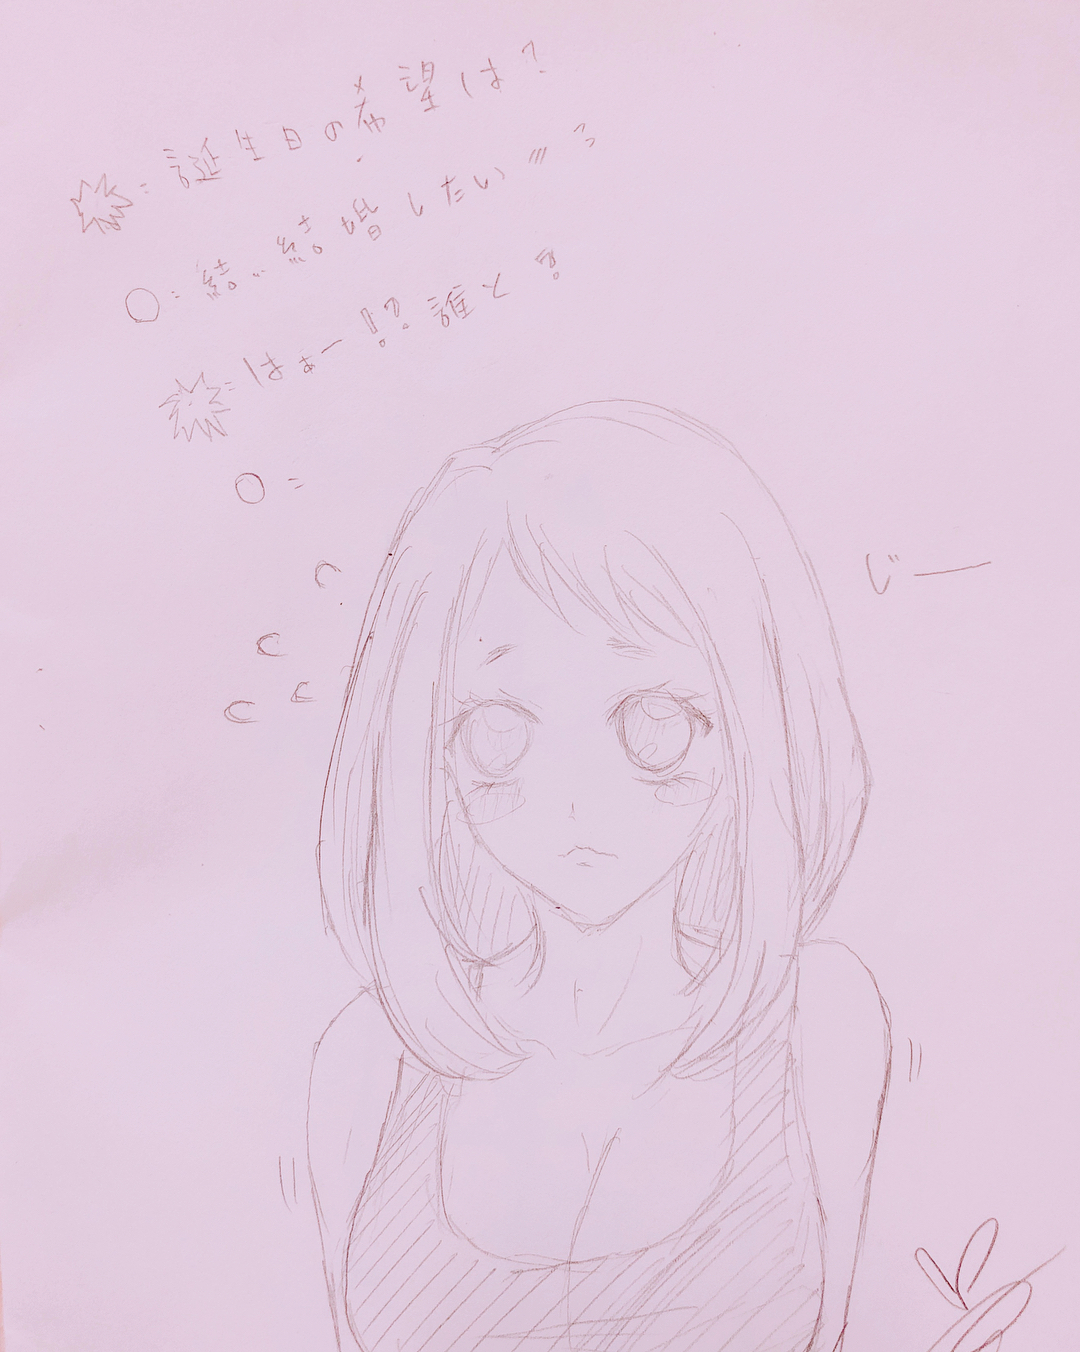 : 誕生日の希望は?
○: 結… 結婚したい///
: はぁー!?誰と?
○=
じー